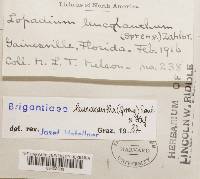 Lichens of North America
Lopadium leucoxanthum
(Spreng.) Zahlbr.
Gainesville, Florida. Feb. 1916
Coll. M. L. T. Nelson. no 238
Brigantiaea leucoxantha (Spreng.)
det. rev. Josef Hafellner Graz, 19
HERBARIUM OF
LINCOLN W. RIDDLE
HARVARD
UNIVERSITY